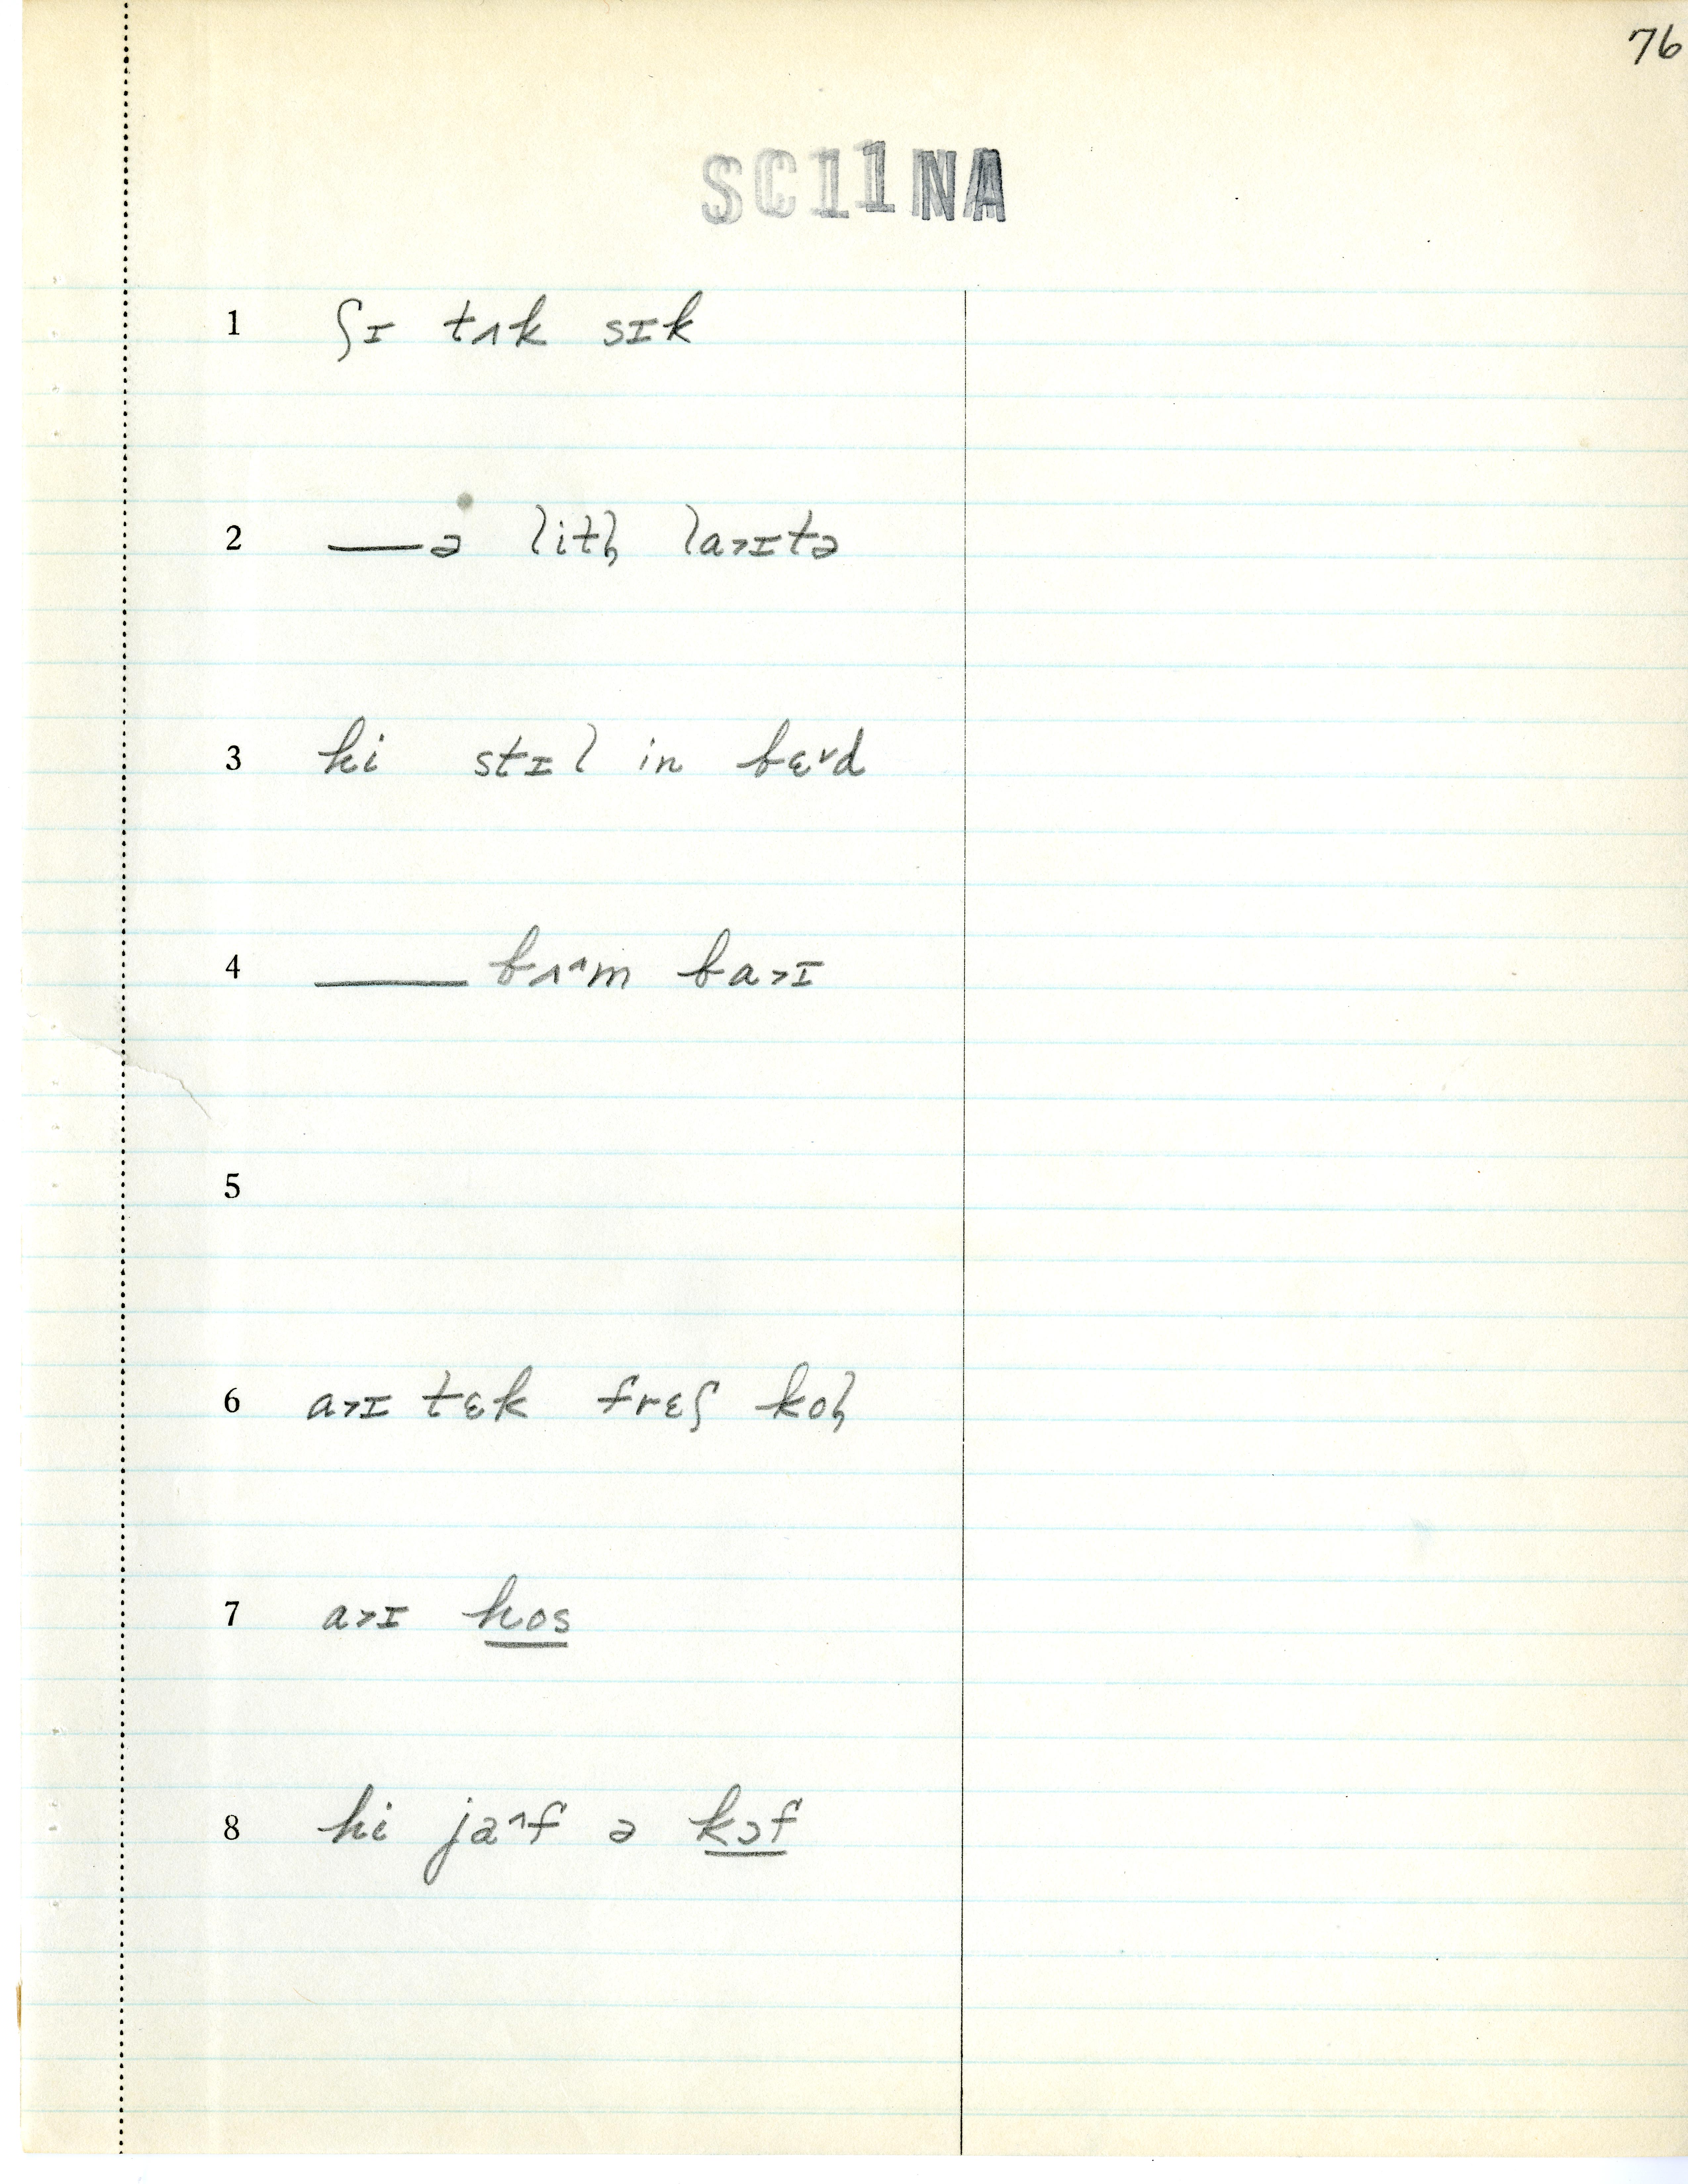 76
SC11NA
1 ʃɪ tʌk sɪk
2 ___ə litl̩ la˃ɪtə
3 hi stɪl in bɛ˅d
4 ___ bʌ˄m ba˃ɪ
5
6 a˃ɪ tɛk frɛʃ kol̩
7 a˃ɪ hos
8 hi ja˄f ə kɔf